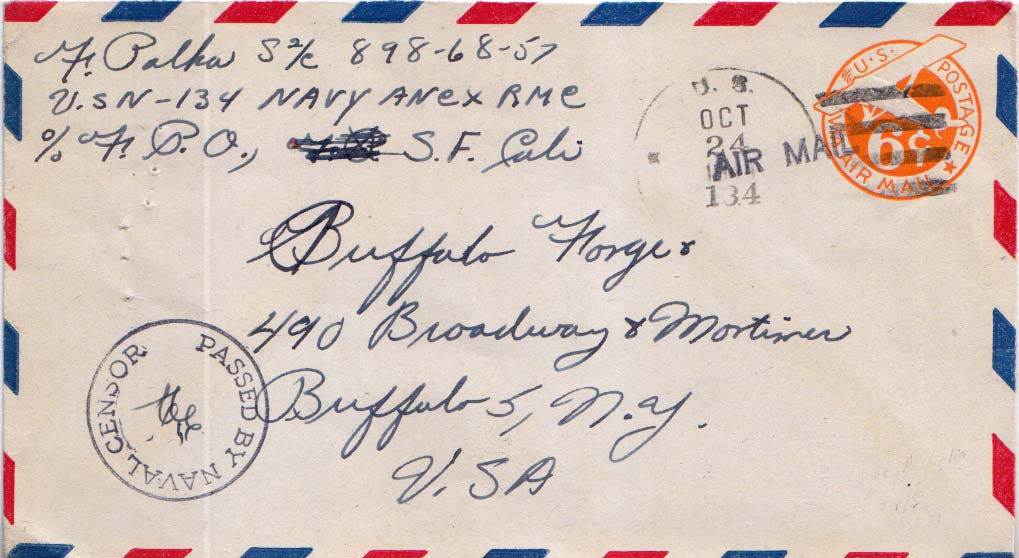 F. Palka S 2/c 898-68-57
U.S N-134 NAVY ANEX RME
% F. P.O., S.F. Cali
U. S.
OCT
24
134
AIR MAIL
U.S. POSTAGE
6¢
VIA AIR MAIL
Buffalo Forge &
490 Broadway & Mortimer
Buffalo 5, N.Y.
U.SA
PASSED BY NAVAL CENSOR